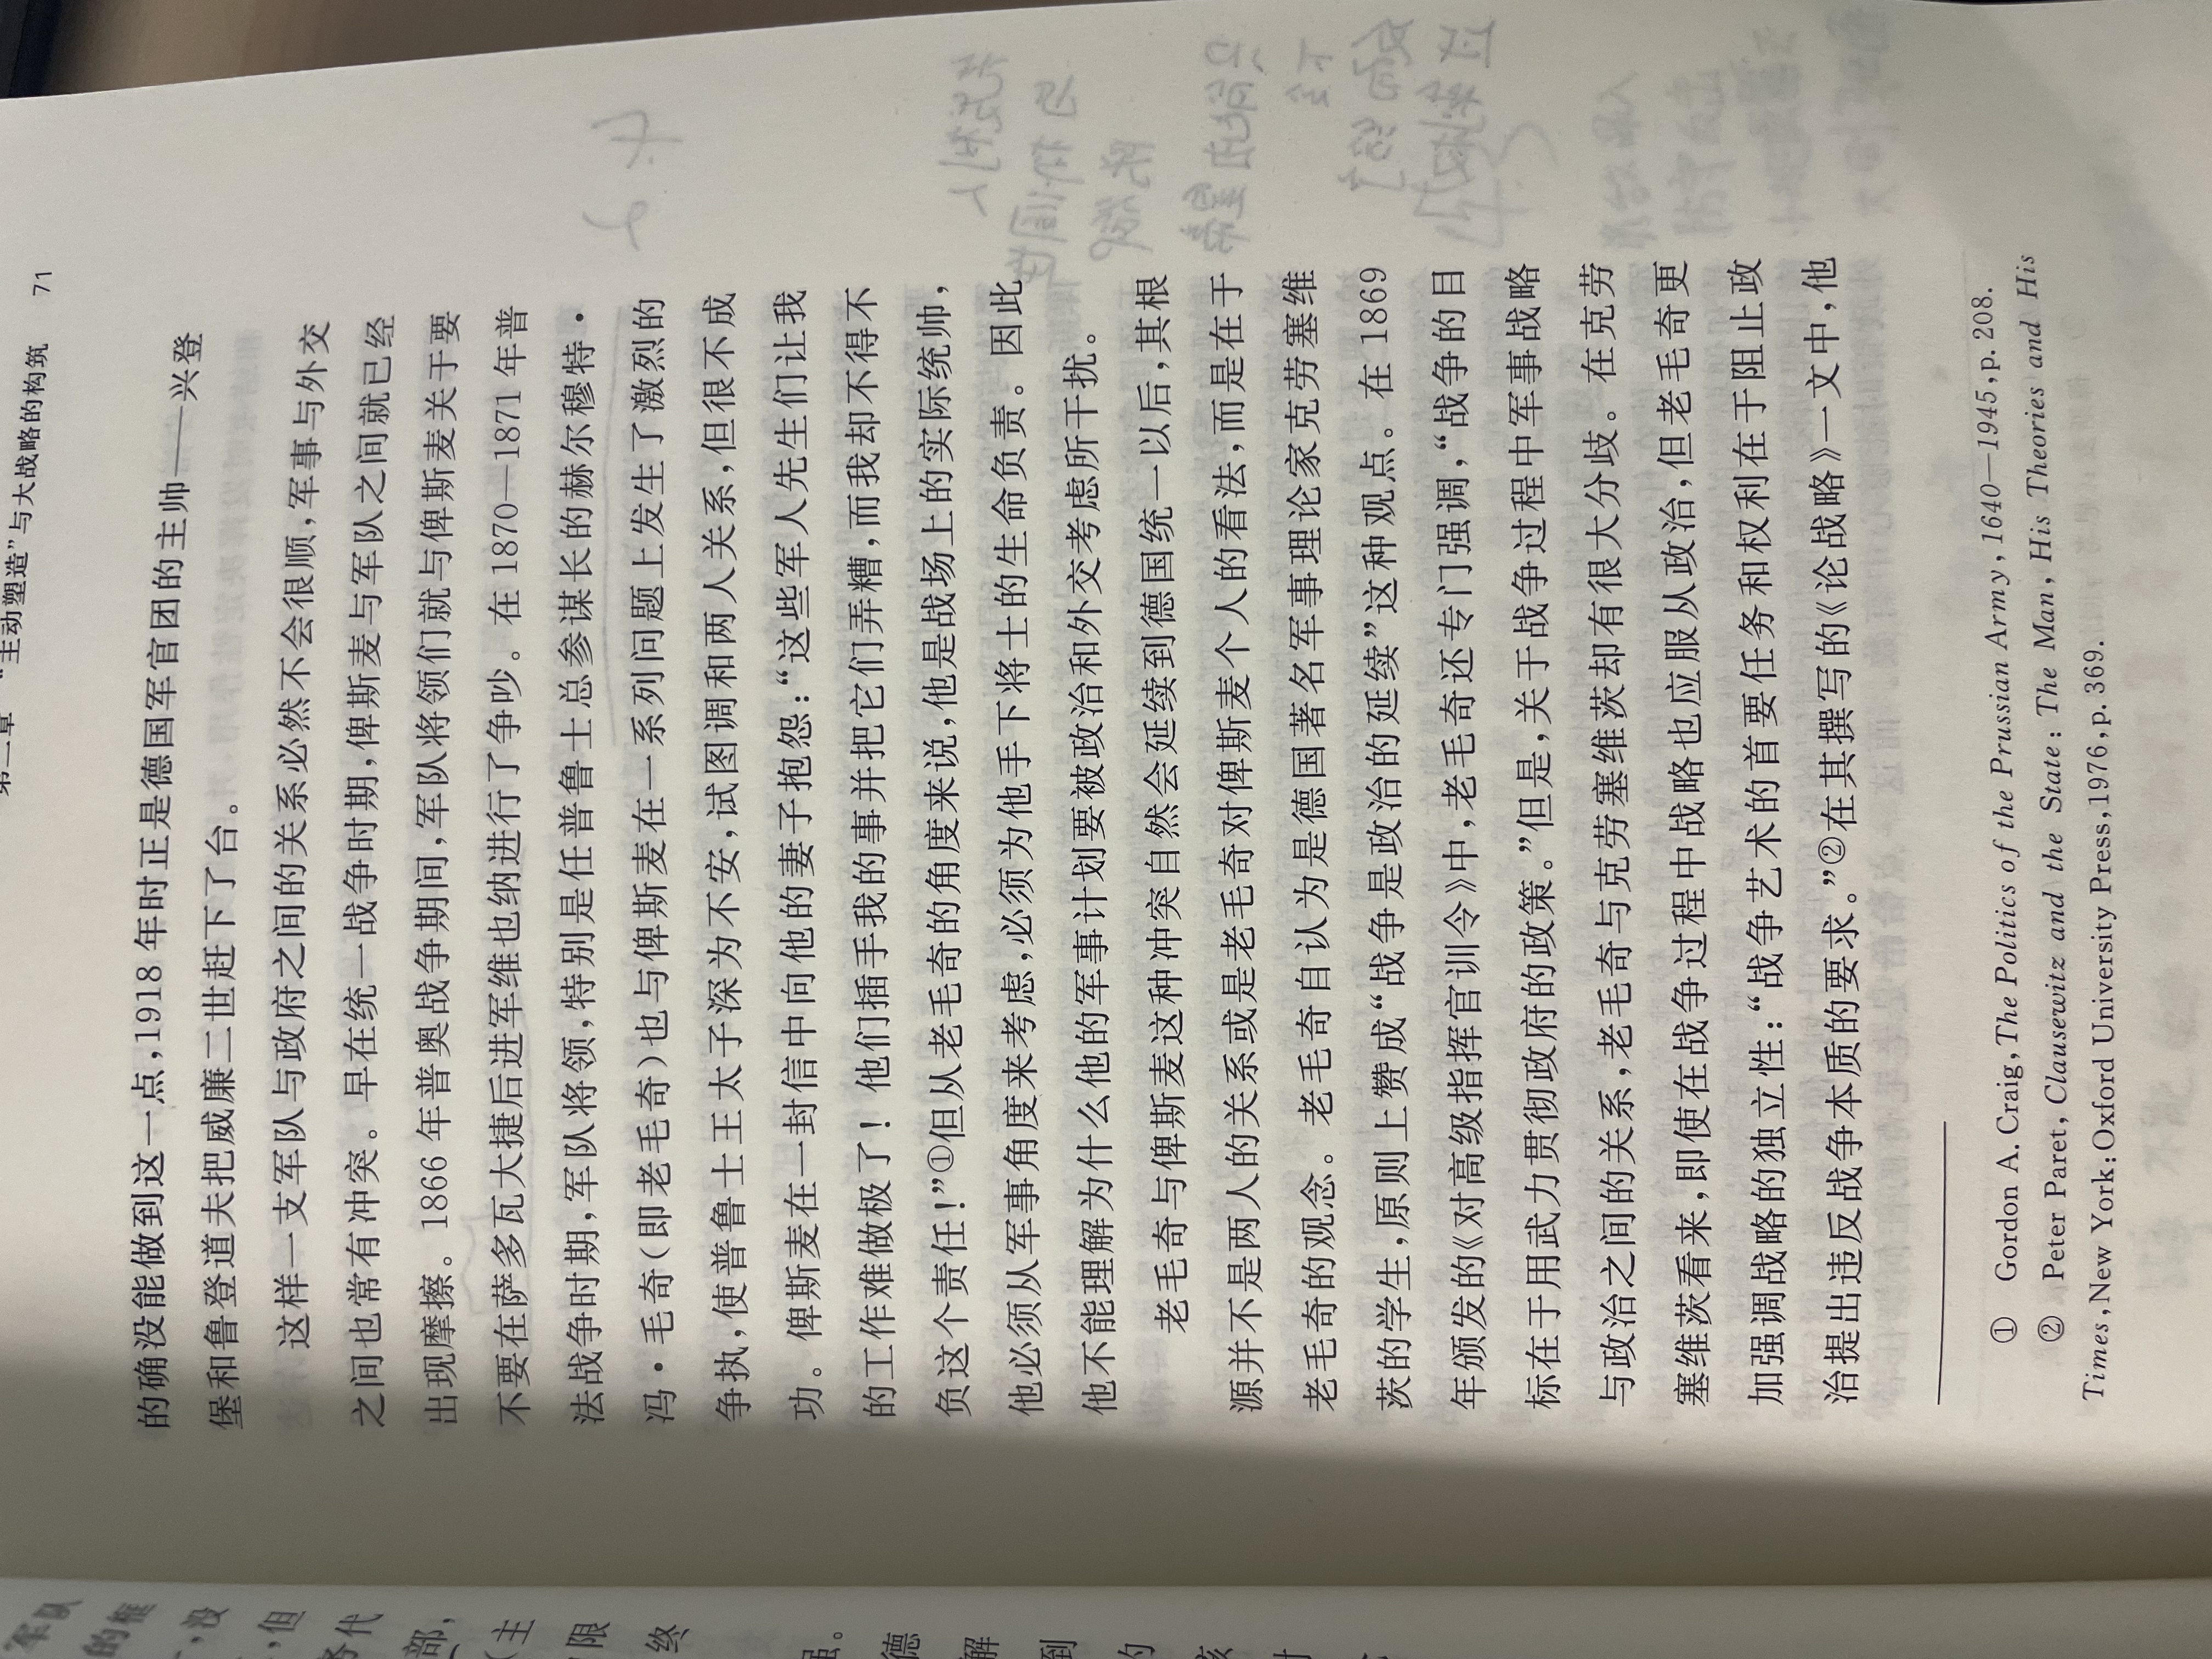 第二章 “主动塑造”与大战略的构筑 71
的确没能做到这一点,1918 年时正是德国军官团的主帅——兴登
堡和鲁登道夫把威廉二世赶下了台。
这样一支军队与政府之间的关系必然不会很顺,军事与外交
之间也常有冲突。早在统一战争时期,俾斯麦与军队之间就已经
出现摩擦。1866 年普奥战争期间,军队将领们就与俾斯麦关于要
不要在萨多瓦大捷后进军维也纳进行了争吵。在 1870—1871 年普
法战争时期,军队将领,特别是任普鲁士总参谋长的赫尔穆特·
冯·毛奇(即老毛奇)也与俾斯麦在一系列问题上发生了激烈的
争执,使普鲁士王太子深为不安,试图调和两人关系,但很不成
功。俾斯麦在一封信中向他的妻子抱怨:“这些军人先生们让我
的工作难做极了!他们插手我的事并把它们弄糟,而我却不得不
负这个责任!”①但从老毛奇的角度来说,他是战场上的实际统帅,
他必须从军事角度来考虑,必须为他手下将士的生命负责。因此
他不能理解为什么他的军事计划要被政治和外交考虑所干扰。
老毛奇与俾斯麦这种冲突自然会延续到德国统一以后,其根
源并不是两人的关系或是老毛奇对俾斯麦个人的看法,而是在于
老毛奇的观念。老毛奇自认为是德国著名军事理论家克劳塞维
茨的学生,原则上赞成“战争是政治的延续”这种观点。在 1869
年颁发的《对高级指挥官训令》中,老毛奇还专门强调,“战争的目
标在于用武力贯彻政府的政策。”但是,关于战争过程中军事战略
与政治之间的关系,老毛奇与克劳塞维茨却有很大分歧。在克劳
塞维茨看来,即使在战争过程中战略也应服从政治,但老毛奇更
加强调战略的独立性:“战争艺术的首要任务和权利在于阻止政
治提出违反战争本质的要求。”②在其撰写的《论战略》一文中,他
① Gordon A. Craig, The Politics of the Prussian Army, 1640—1945, p. 208.
② Peter Paret, Clausewitz and the State: The Man, His Theories and His
Times, New York: Oxford University Press, 1976, p. 369.